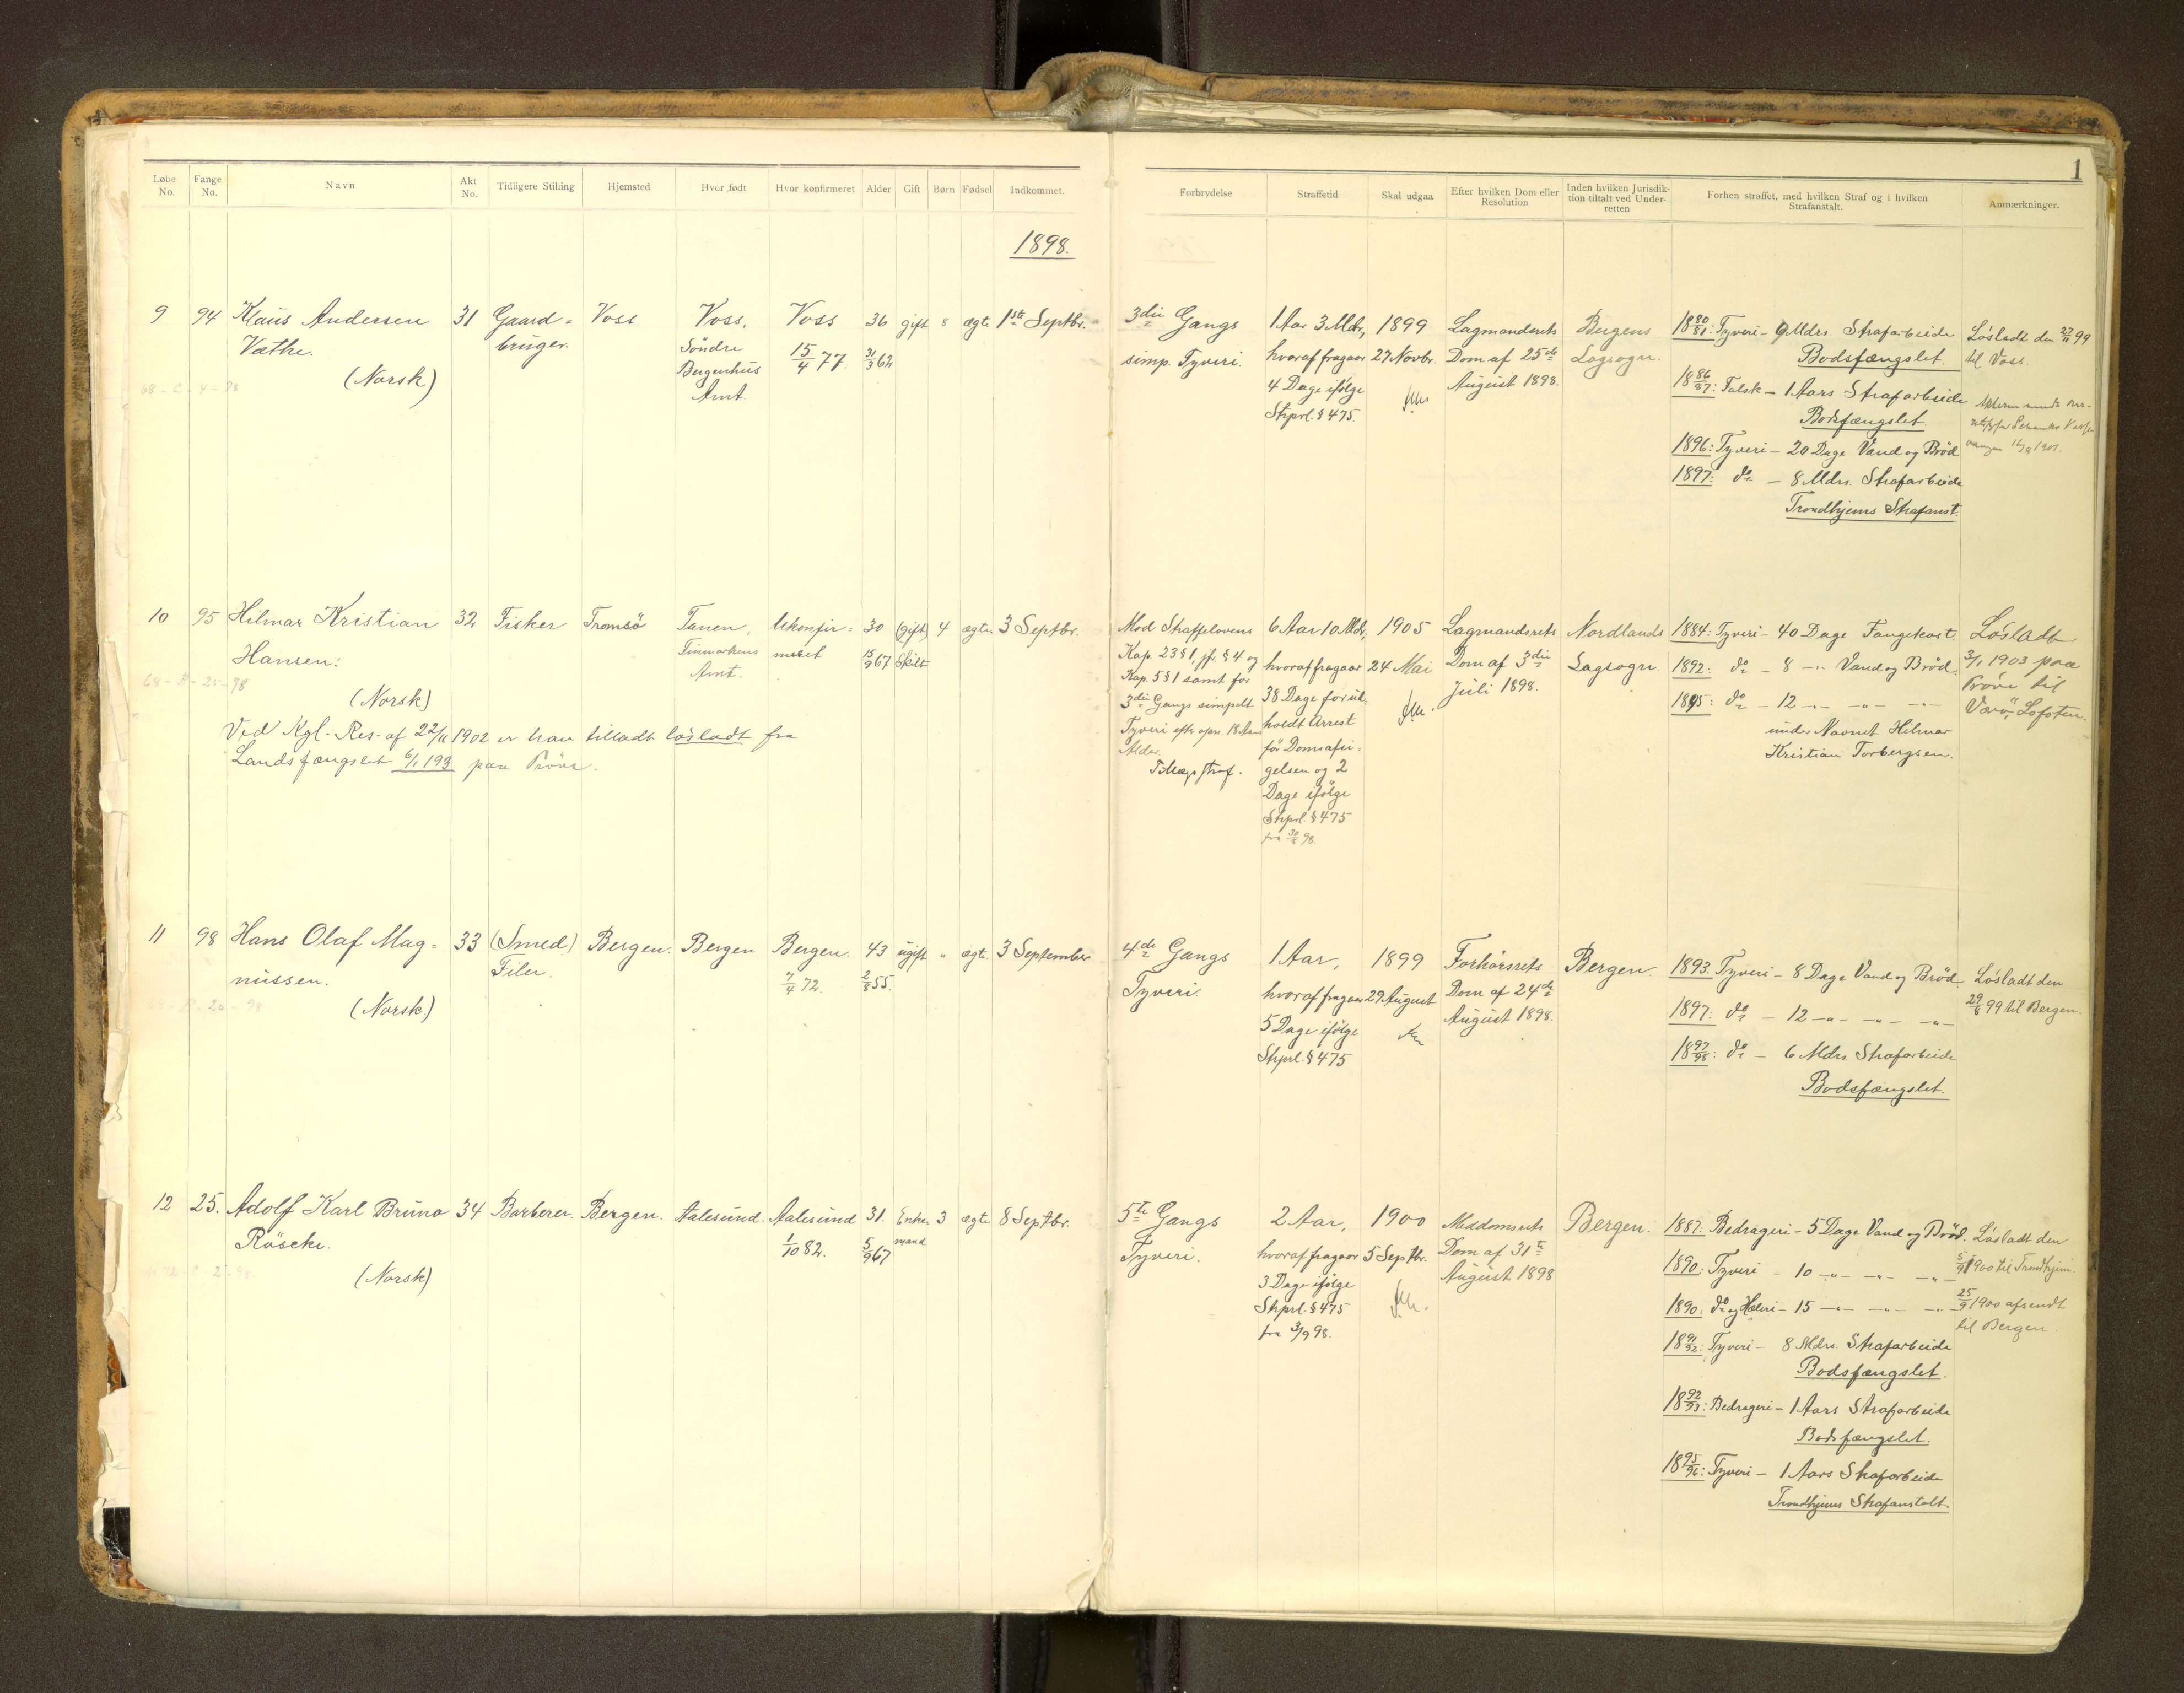 1
Løbe No.
Fange No.
Navn
Akt No.
Tidligere Stilling
Hjemsted
Hvor født
Hvor konfirmeret
Alder
Gift
Børn
Fødsel
Indkommet.
Forbrydelse
Straffetid
Skal udgaa
Efter hvilken Dom eller Resolution
Inden hvilken Jurisdiktion tiltalt ved Underretten
Forhen straffet, med hvilken Straf og i hvilken Strafanstalt.
Anmærkninger.
1898.
9
94
Klaus Andersen
Væthe.
(Norsk)
68-C-4-98
31
Gaard=
bruger.
Voss
Voss,
Søndre
Bergenhus
Amt.
Voss
15/4 77.
36
31/3 62
gift
8
ægte
1ste Septbr.
3die Gangs
simp. Tyveri.
1 Aar 3 Mdr,
hvoraf fragaar
4 Dage ifølge
Strprl. § 475.
1899
27 Novbr.
Lagmandsrets
Dom af 25de
August 1898.
Bergens
Lagsogn.
1880/81: Tyveri - 9 Mdrs. Strafarbeide
Bodsfængslet.
1886/87: Falsk - 1 Aars Strafarbeide
Bodsfængslet.
1896: Tyveri - 20 Dage Vand og Brød
1897: do - 8 Mdrs. Strafarbeide
Trondhjems Strafanst.
Løsladt den 27/11 99
til Voss.
10
95
Hilmar Kristian
Hansen:
68-B-25-98
(Norsk)
Ved Kgl. Res. af 22/11 1902 er han tilladt løsladt fra
Landsfængslet 6/1 193 paa Prøve.
32
Fisker
Tromsø
Tanen,
Finmarkens
Amt.
Ukonfir=
meret
30
15/9 67
(gift)
Skilt
4
ægte
3 Septbr.
Mod Straffelovens
Kap. 23 § 1, jfr. § 4 og
Kap. 5 § 1 samt for
3die Gangs simpelt
Tyveri efter opn. 18 Aars
Alder.
Tillægsstraf.
6 Aar 10 Mdr,
hvoraf fragaar
38 Dage for ud-
holdt Arrest
før Domsafsi-
gelsen og 2
Dage ifølge
Strprl. § 475
fra 30/8 98.
1905
24 Mai
Lagmandsrets
Dom af 3die
Juli 1898.
Nordlands
Lagsogn.
1884: Tyveri - 40 Dage Fangekost
1892: do - 8 -"- Vand og Brød
1895: do - 12 -"- -"- -"-
under Navnet Hilmar
Kristian Torbergsen.
Løsladt
3/1 1903 paa
Prøve til
Værø, Lofoten.
11
98
Hans Olaf Mag=
nussen.
68-B-20-98
(Norsk)
33
(Smed)
Filer.
Bergen.
Bergen
Bergen.
7/4 72.
43
2/8 55.
ugift
"
ægte
3 September
4de Gangs
Tyveri.
1 Aar,
hvoraf fragaar
5 Dage ifølge
Strprl. § 475
1899
29 August
Forhørsrets
Dom af 24de
August 1898.
Bergen.
1893: Tyveri - 8 Dage Vand og Brød
1897: do - 12 -"- -"- -"-
1897/98: do - 6 Mdrs. Strafarbeide
Bodsfængslet.
Løsladt den
29/8 99 til Bergen.
12
25.
Adolf Karl Bruno
Röscke.
(Norsk)
34
Barberer.
Bergen.
Aalesund.
Aalesund
1/10 82.
31.
5/9 67
Enke-
mand
3
ægte
8 Septbr.
5te Gangs
Tyveri.
2 Aar,
hvoraf fragaar
3 Dage ifølge
Strprl. § 475
fra 3/9 98.
1900
5 Septbr.
Meddomsrets
Dom af 31te
August 1898
Bergen.
1887: Bedrageri - 5 Dage Vand og Brød.
1890: Tyveri - 10 -"- -"- -"-
1890: do og Hæleri - 15 -"- -"- -"-
1891/92: Tyveri - 8 Mdrs. Strafarbeide
Bodsfængslet.
1892/93: Bedrageri - 1 Aars Strafarbeide
Bodsfængslet.
1895/96: Tyveri - 1 Aars Strafarbeide
Trondhjems Strafanstalt.
Løsladt den
5/9 1900 til Trondhjem.
25/9 1900 afsendt
til Bergen.